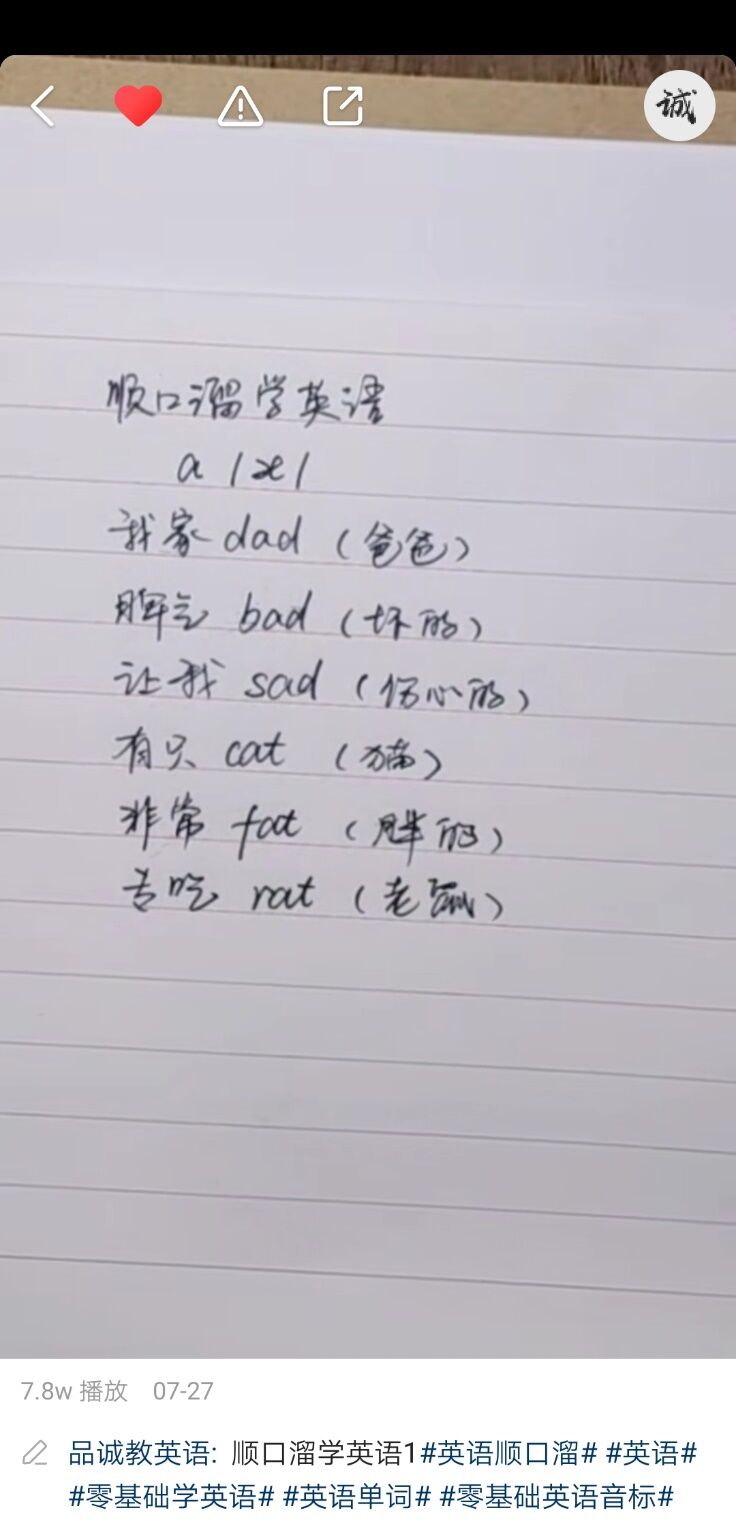 诚
顺口溜学英语
a /æ/
我家 dad (爸爸)
脾气 bad (坏的)
让我 sad (伤心的)
有只 cat (猫)
非常 fat (胖的)
去吃 rat (老鼠)
7.8w 播放 07-27
品诚教英语: 顺口溜学英语1#英语顺口溜# #英语#
#零基础学英语# #英语单词# #零基础英语音标#